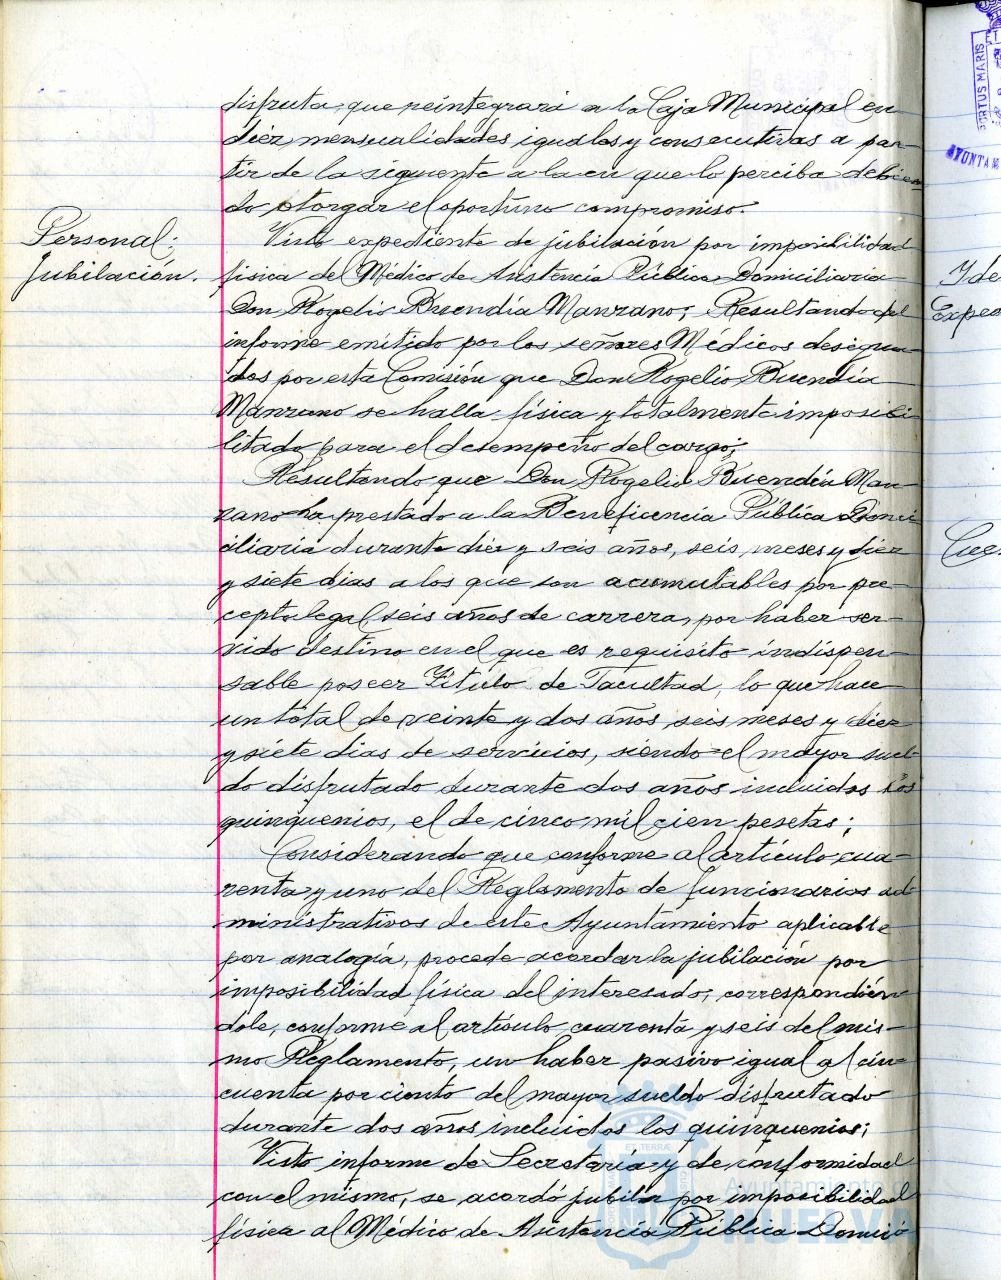 disfruta, que reintegrará a la Caja Municipal en
diez mensualidades iguales y consecutivas a par-
tir de la siguiente a la en que lo perciba debien-
do, otorgar el oportuno compromiso.
Personal:
Jubilación.
Visto expediente de jubilación por imposibilidad
física del Médico de Asistencia Pública Domiciliaria
Don Rogelio Buendía Manzano; Resultando del
informe emitido por los señores Médicos designa-
dos por esta Comisión que Don Rogelio Buendía
Manzano se halla física y totalmente imposibi-
litado para el desempeño del cargo;
Resultando que Don Rogelio Buendía Man-
zano ha prestado a la Beneficencia Pública Domi-
ciliaria durante diez y seis años, seis meses y diez
y siete dias a los que son acumutables por pre-
cepto legal, seis años de carrera, por haber ser-
vido destino en el que es requisito indispen-
sable poseer Título de Facultad, lo que hace
un total de veinte y dos años, seis meses y diez
y siete dias de servicios, siendo el mayor suel-
do disfrutado durante dos años incluidos los
quinquenios, el de cinco mil cien pesetas;
Considerando que conforme al artículo cua-
renta y uno del Reglamento de funcionarios ad-
ministrativos de este Ayuntamiento aplicable
por analogía, procede acordar la jubilación por
imposibilidad física del interesado, correspondién
dole, conforme al artículo cuarenta y seis del mis-
mo Reglamento, un haber pasivo igual al cin-
cuenta por ciento del mayor sueldo disfrutado
durante dos años incluidos los quinquenios;
Visto informe de Secretaría y de conformidad
con el mismo, se acordó jubilar por imposibilidad
física al Médico de Asistencia Pública Domici
PORTUS MARIS
AYUNTAM
Y de
Exped
Cue
ET TERRÆ
Ayuntamiento de
HUELVA